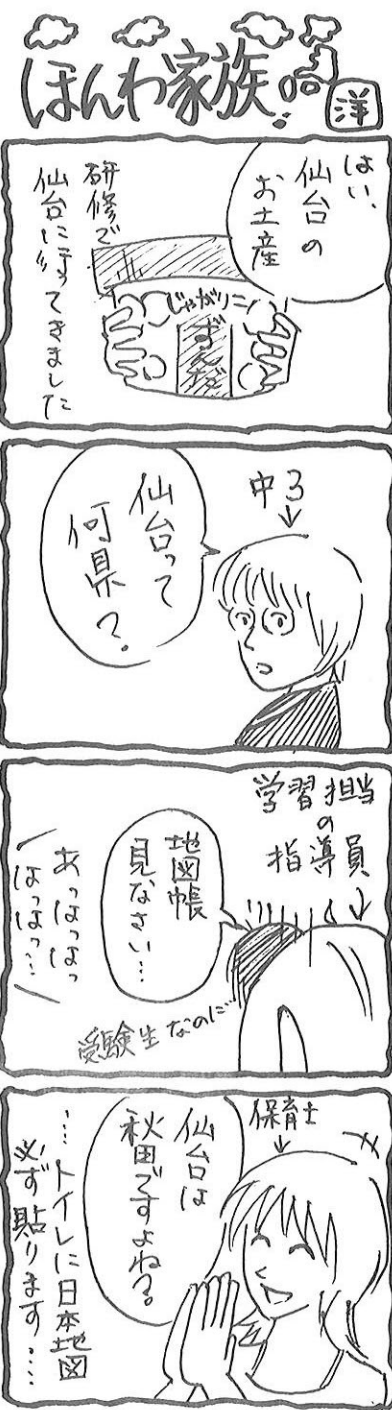 ほんわ家族
洋
はい、
仙台の
お土産
じゃがりこ
ずんだ
研修で
仙台に行ってきました
中3
仙台って
何県?
学習担当
の
指導員
地図帳
見なさい…
受験生なのに…
あっはっはっ
はっはっ…
保育士
仙台は
秋田ですよね?。
…トイレに日本地図
必ず貼ります…